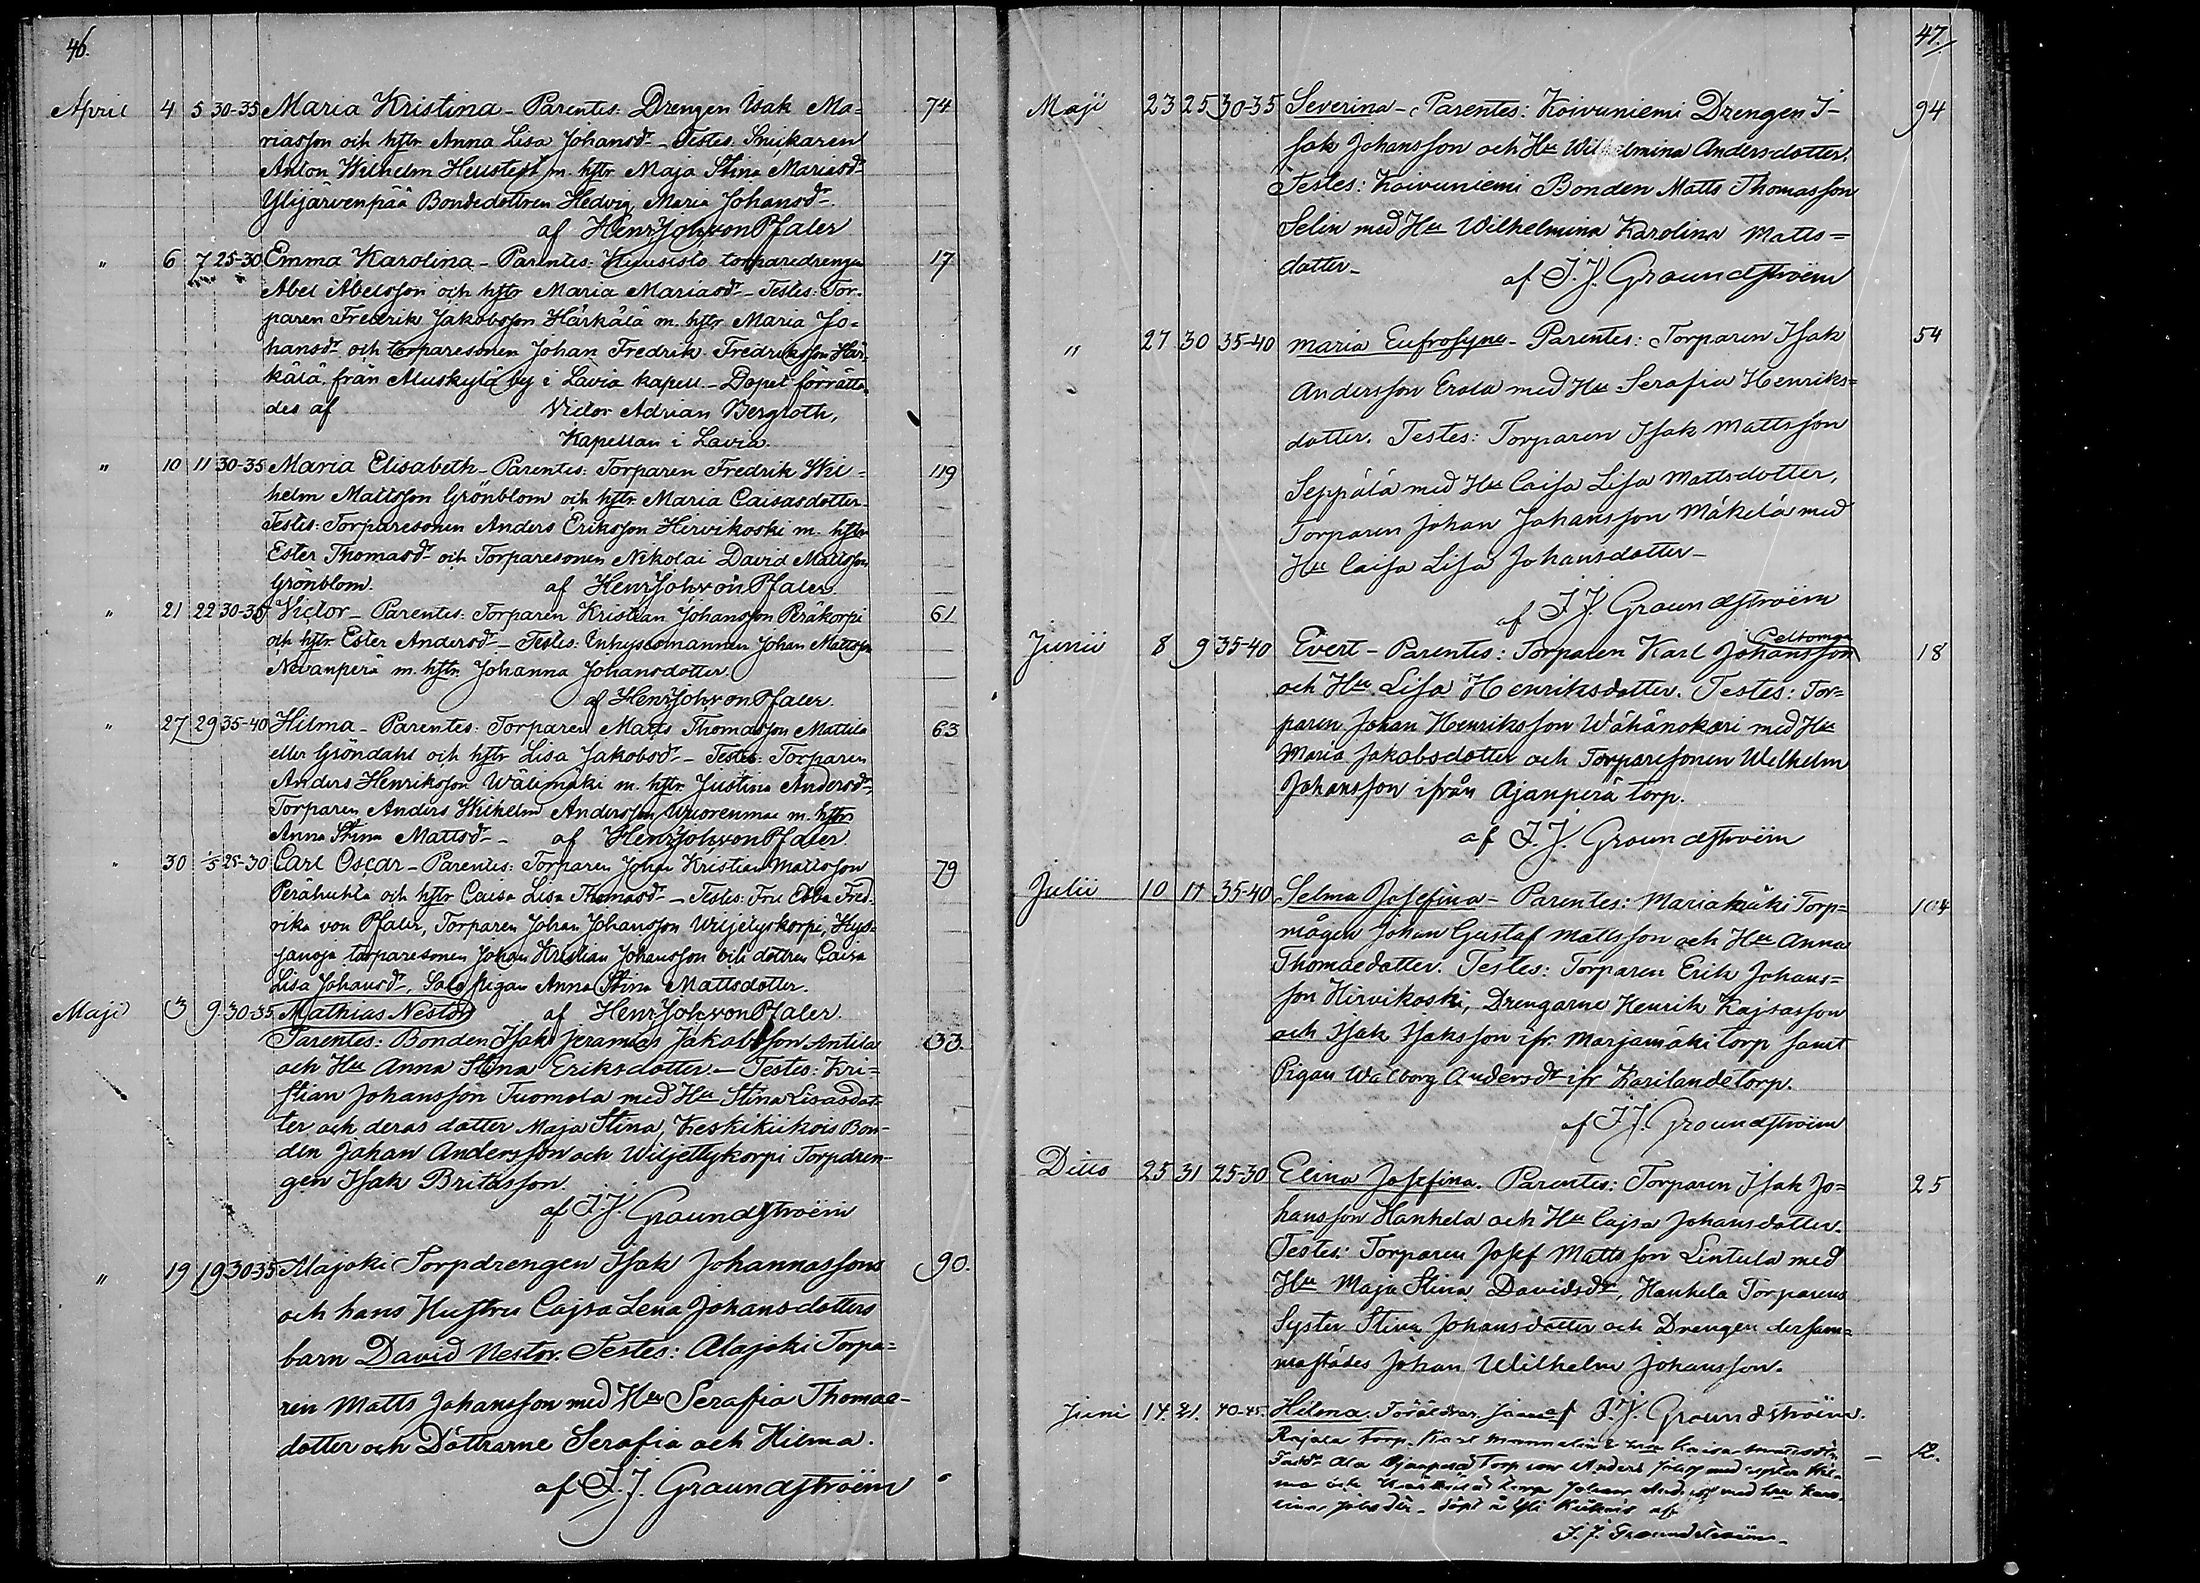 46.
April 4 5 30-35 Maria Kristina - Parentes: Drengen Isak Ma= 74
riasson och hstr Anna Lisa Johansdr - Testes: Snickaren
Anton Wilhelm m. hstr Maja Stina Mariasdr
Ylijärvenpää Bondedottren Hedvig Maria Johansdr
af Henr Joh von Pfaler
" 6 7 25-30 Emma Karolina - Parentes: torparedrengen 17
Abel Abelsson och hstr Maria Mariasdr - Testes: Tor-
paren Fredrik Jakobsson Härkälä m. hstr Maria Jo=
hansdr och torparesonen Johan Fredrik Fredriksson Här-
kälä från Muskylä by i Lavia kapell. - Dopet förrätta-
des af Victor Adrian Bergroth,
Kapellan i Lavia.
" 10 11 30-35 Maria Elisabeth - Parentes: Torparen Fredrik Wil- 119
helm Mattsson Grönblom och hstr Maria Caisasdotter
Testes: Torparesonen Anders Eriksson Hirvikoski m. hstr
Ester Thomasdr och Torparesonen Nikolai David Mattsson
Grönblom. af Henr Joh von Pfaler
" 21 22 30-35 Victor - Parentes: Torparen Kristian Johansson Peräkorpi 61
och hstr Ester Andersdr - Testes: Inhysesmannen Johan Mattsson
Nevanperä m. hstr Johanna Johansdotter.
af Henr Joh von Pfaler.
" 27 29 35-40 Hilma - Parentes: Torparen Matts Thomasson Mattila 63
eller Gröndahl och hstr Lisa Jakobsdr - Testes: Torparen
Anders Henriksson Wälimäki m. hstr Justina Andersdr
Torparen Anders Wilhelm Andersson Wuorenmaa m. hstr
Anna Stina Mattsdr - af Henr Joh von Pfaler
" 30 1/5 25-30 Carl Oscar - Parentes: Torparen Johan Kristian Mattsson 79
Perähuhta och hstr Caisa Lisa Thomasdr - Testes: Fru Ebba Fred-
rika von Pfaler, Torparen Johan Johansson Wiljetyskorpi,
torparesonen Johan Kristian Johansson och dottren Caisa
Lisa Johansdr, Salo pigan Anna Stina Mattsdotter.
Maji 3 9 30-35 Mathias Nestor af Henr Joh von Pfaler.
Parentes: Bonden Isak Jeramias Jakobsson Antila 33.
och Hu Anna Stina Eriksdotter. - Testes: Kri=
stian Johansson Tuomola med Hu Stina Lisasdot-
ter och deras dotter Maja Stina, Keskikiikois Bon-
den Johan Andersson och Wiljettykorpi Torpdren-
gen Isak Britasson.
af I. J. Graundstroëm
" 19 19 30-35 Alajoki Torpdrengen Isak Johannassons 90.
och hans Hustru Cajsa Lena Johansdotters
barn David Nestor. Testes: Alajoki Torpa=
ren Matts Johansson med Hu Serafia Thomae-
dotter och Döttrarne Serafia och Hilma.
af I. J. Graundstroëm
47.
Maji 23 25 30-35 Severina - Parentes: Koivuniemi Drengen I- 94
sak Johansson och Hu Wilhelmina Andersdotter.
Testes: Koivuniemi Bonden Matts Thomasson
Selin med Hu Wilhelmina Karolina Matts=
dotter - af I. J. Graundstroëm
" 27 30 35-40 Maria Eufrosyne - Parentes: Torparen Isak 54
Andersson Erola med Hu Serafia Henriks=
dotter. Testes: Torparen Isak Mattsson
Seppälä med Hu Caisa Lisa Mattsdotter,
Torparen Johan Johansson Mäkelä med
Hu Caisa Lisa Johansdotter -
af I. J. Graundstroëm
Peltomaa
Junii 8 9 35-40 Evert - Parentes: Torparen Karl Johansson 18
och Hu Lisa Henriksdotter. Testes: Tor=
paren Johan Henriksson Wähänokari med Hu
Maria Jakobsdotter och Torparesonen Welhelm
Johansson ifrån Ajanperä torp.
af I. J. Graundstroëm
Julii 10 11 35-40 Selma Josefina - Parentes: Mariamäki Torp= 104
mågen Johan Gustaf Mattsson och Hu Anna
Thomaedotter. Testes: Torparen Erik Johans=
son Hirvikoski, Drengarne Henrik Kajsasson
och Isak Isaksson ifr. Marjamäki torp samt
Pigan Walborg Andersdr ifr Karilande torp.
af I. J. Graundstroëm
Ditto 25 31 25-30 Elina Josefina. Parentes: Torparen Isak Jo= 25
hansson Hanhela och Hu Cajsa Johansdotter.
Testes: Torparen Josef Mattsson Lintula med
Hu Maja Stina Davidsdr, Hanhela Torparens
Syster Stina Johansdotter och Drengen dersam=
mastädes Johan Wilhelm Johansson.
Juni 14. 21. 40-45. Hilma. Föräldrar af I. J. Graundstroëm.
Rajala torp. Karl hu Caisa Mattsdr - 12.
Ala torp Anders med syster Hil-
ma och torp Johan med hu Karo-
lina - döpt å Yli Kiikois af
I. J. Graundstroëm -